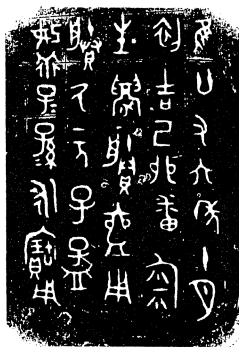 隹廿又六年十月
初吉己卯番匊
生鑄賸壺用
賸氒元子孟
妀乖子=孫=永寶用